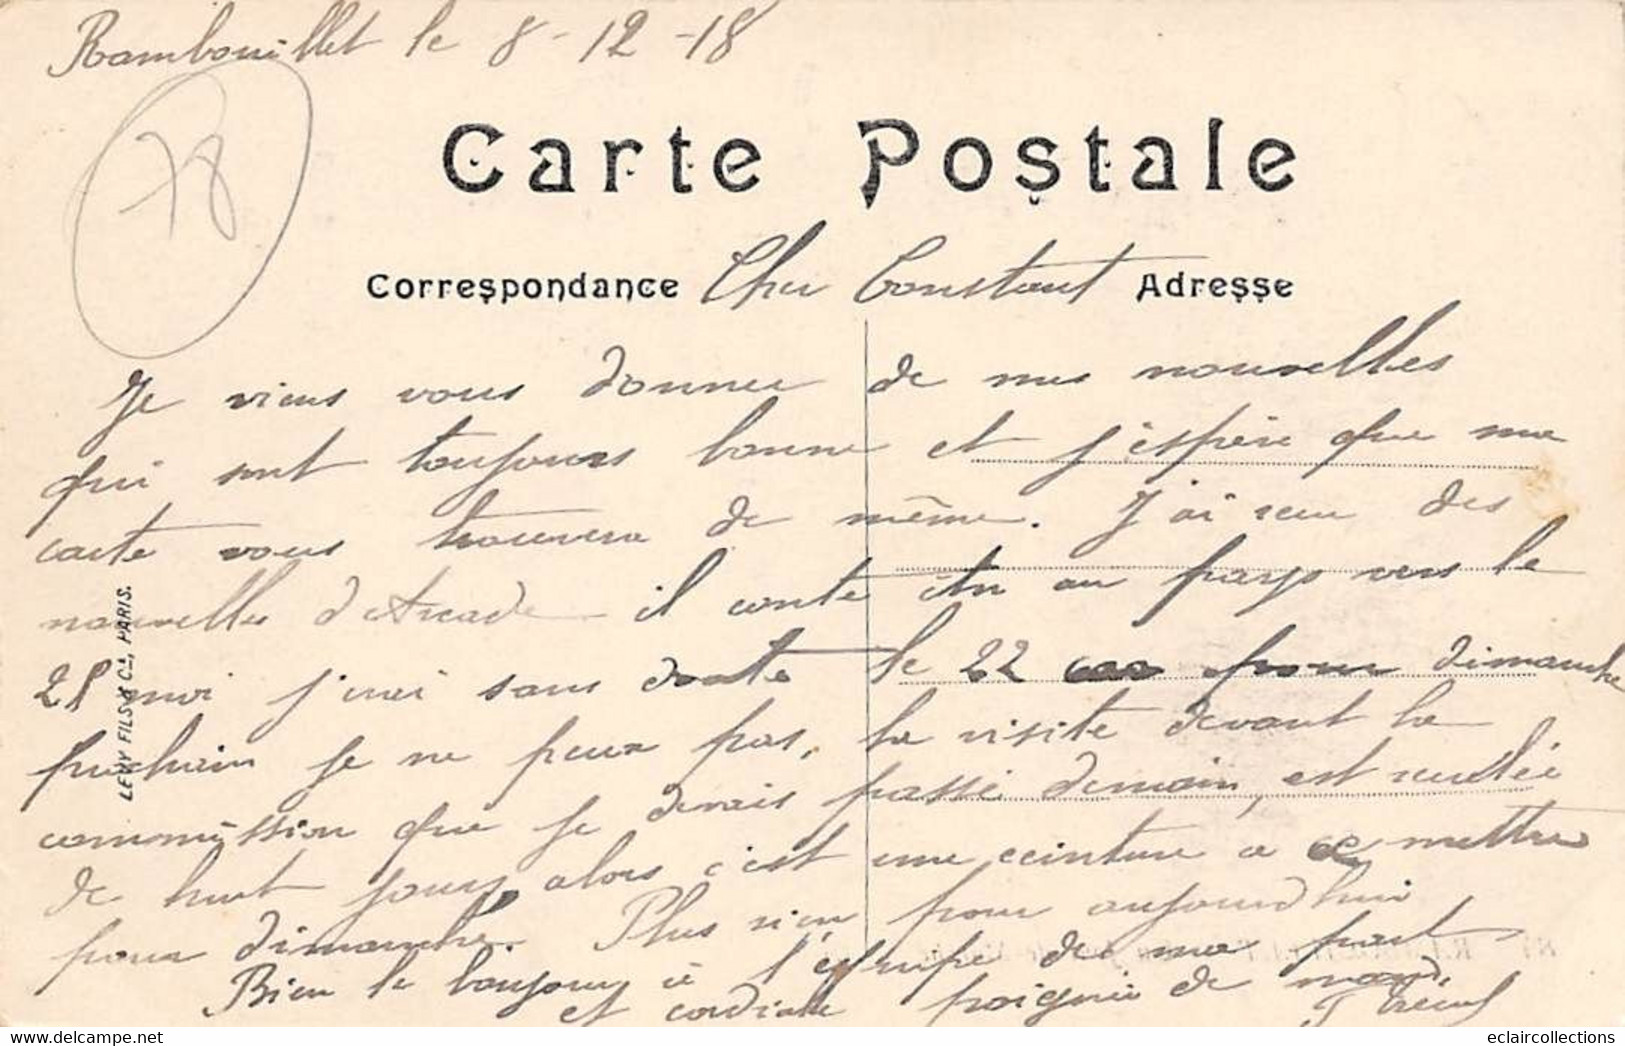 Rambouillet le 8-12-18
78
Carte Postale
Correspondance Cher Constant Adresse
Je viens vous donner de mes nouvelles
qui sont toujours bonne et j'espère que ma
carte vous trouvera de même. J'ai reçu des
nouvelles d'Arcade il conte être au pays vers le
moi j'irai sans doute le 22 pour dimanche
prochain je ne peux pas, la visite devant la
commission que je devais passé demain, est reculée
de huit jours, alors c'est une ceinture a mettre
pour dimanche. Plus rien pour aujourd'hui
Bien le bonjour à l'équipe de ma part
et cordiale poignée de
LEVY FILS & Cie, PARIS.
eclaircollections